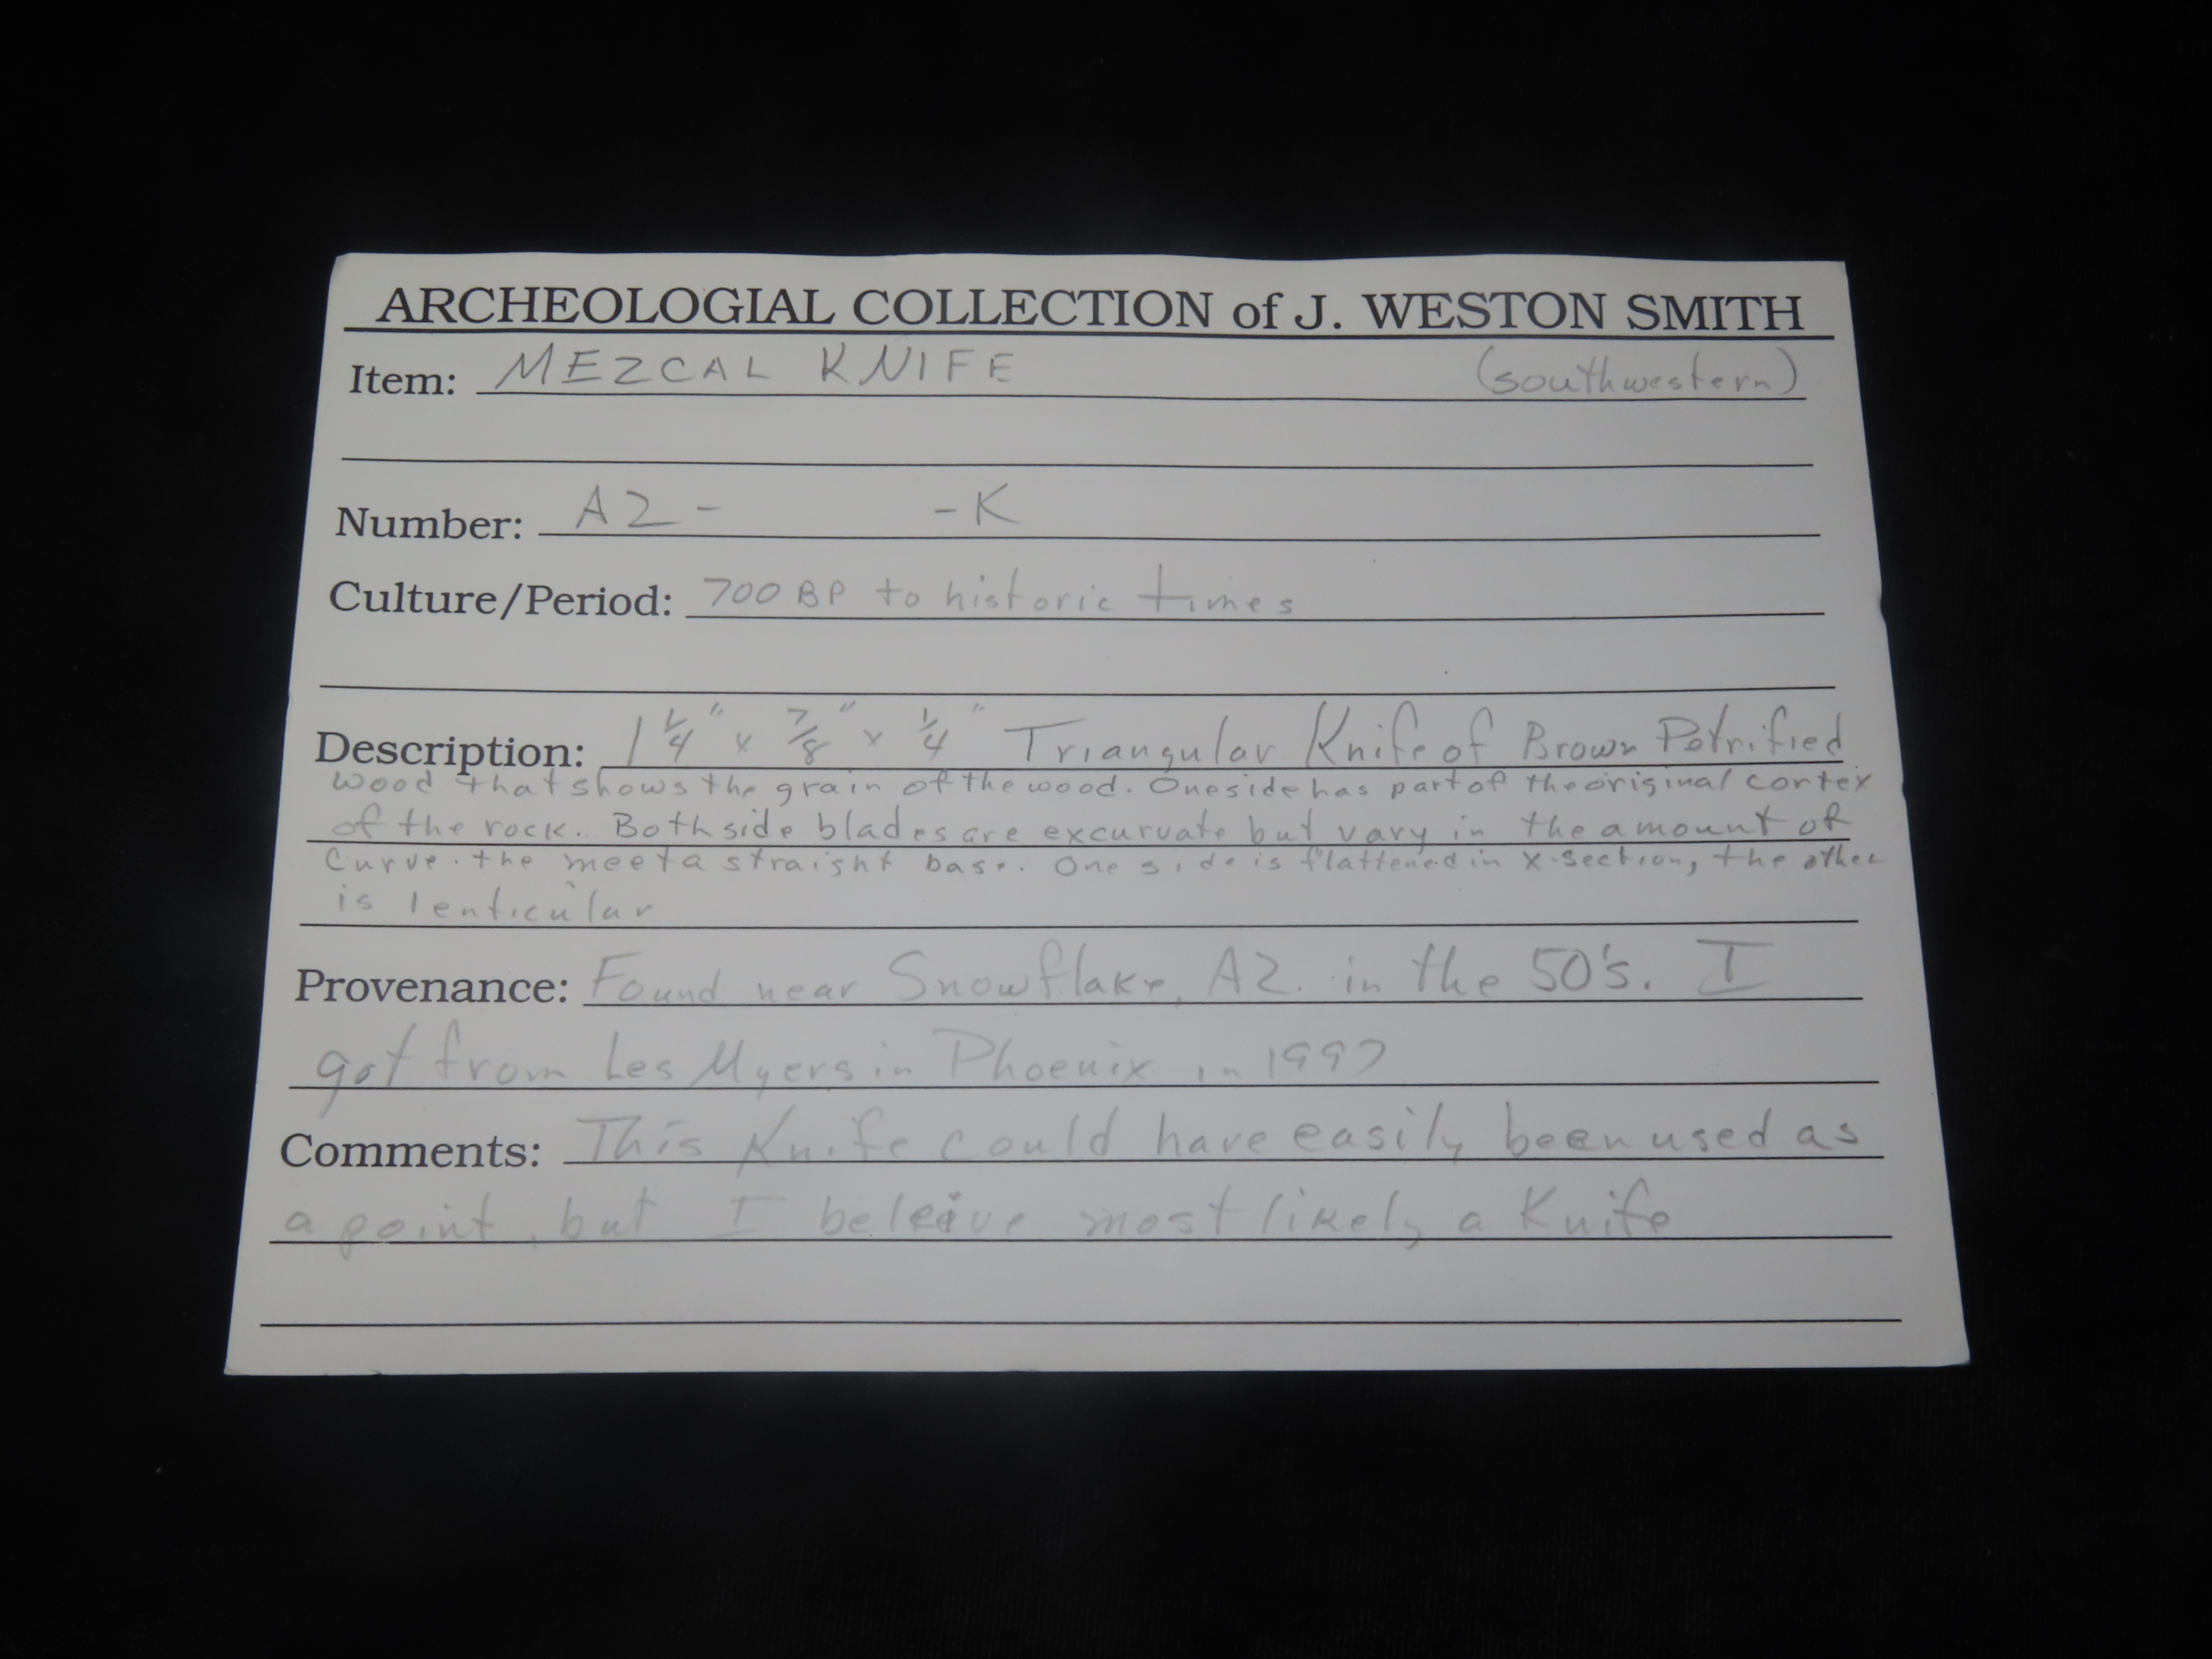 ARCHEOLOGIAL COLLECTION of J. WESTON SMITH
Item: MEZCAL KNIFE (southwestern)
Number: AZ- -K
Culture/Period: 700 BP to historic times
Description: 1 1/4" x 7/8" x 1/4" Triangular Knife of Brown Petrified
wood that shows the grain of the wood. One side has part of the original cortex
of the rock. Both side blades are excurvate but vary in the amount of
Curve. the meet a straight base. One side is flattened in x-section, the other
is lenticular
Provenance: Found near Snowflake, AZ. in the 50's. I
got from Les Myers in Phoenix in 1997
Comments: This Knife could have easily been used as
a point, but I beleive most likely a Knife